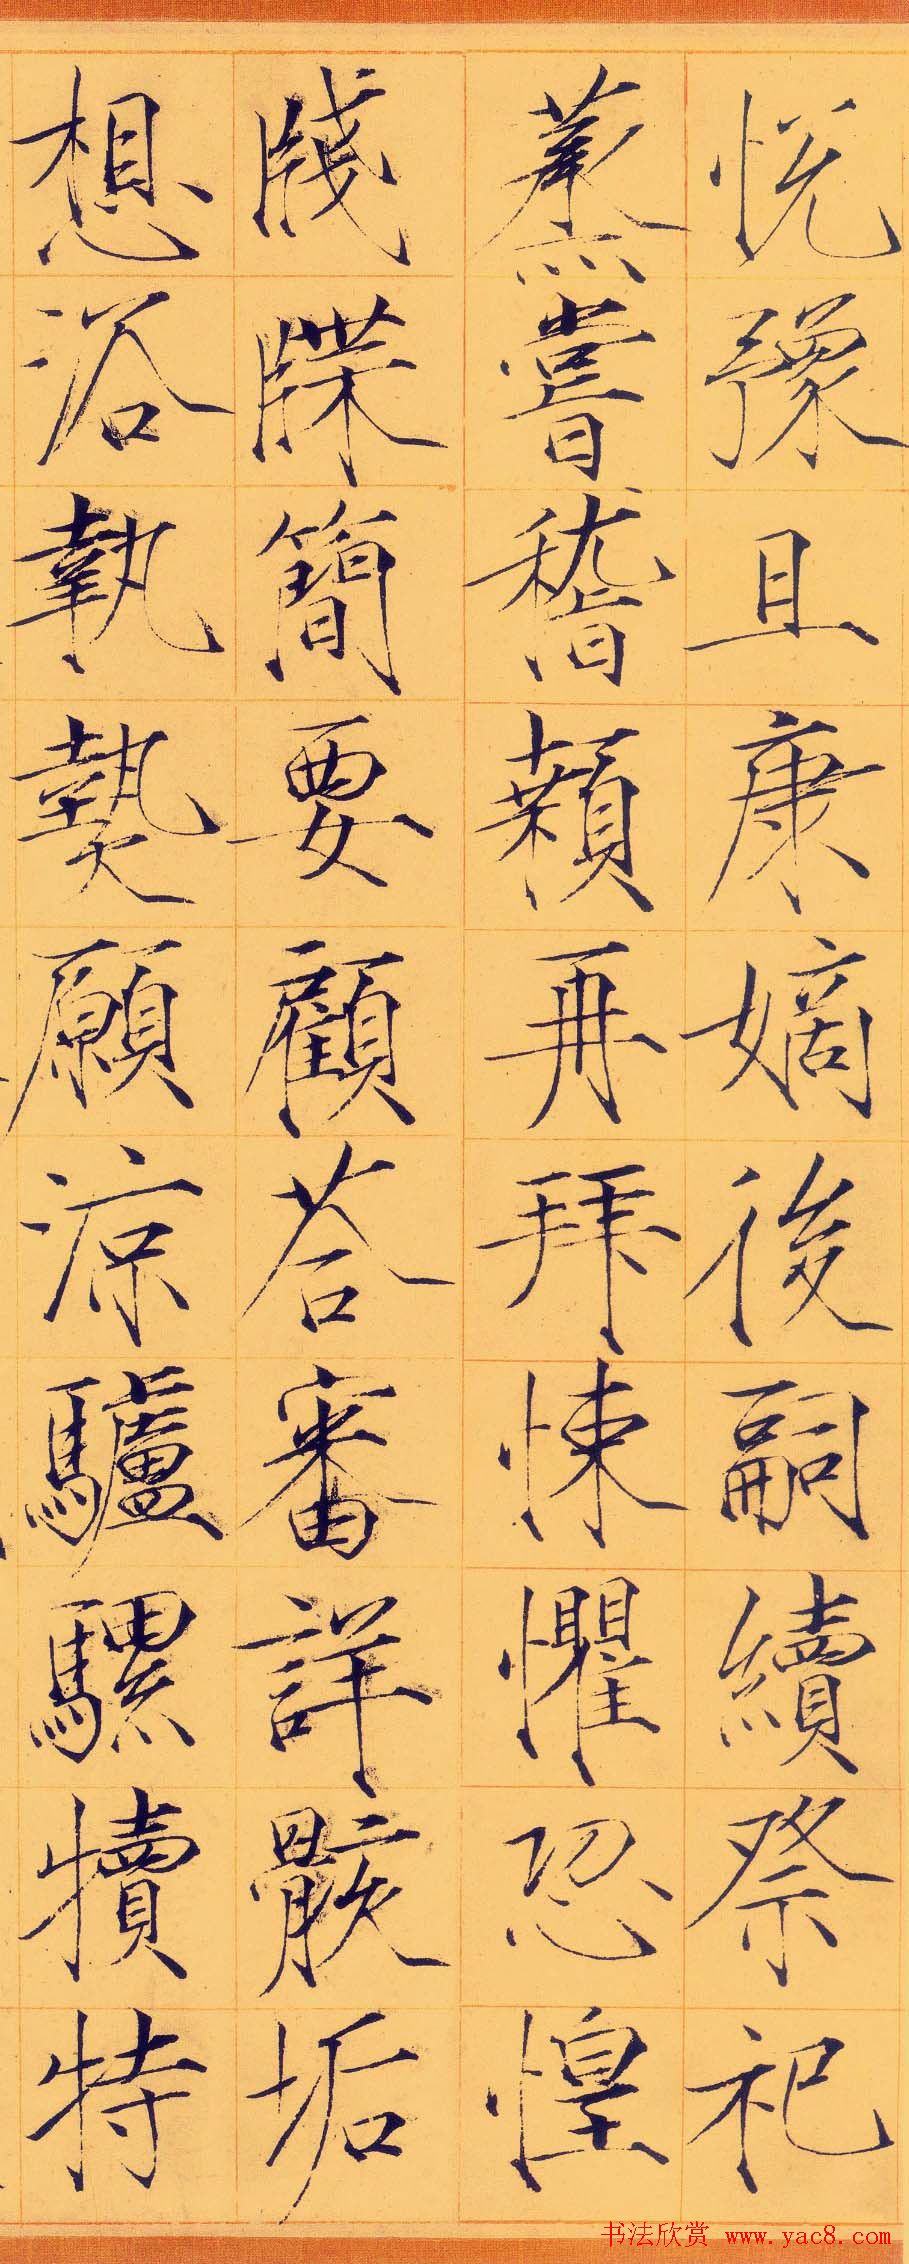 悅豫且康嫡後嗣續祭祀
蒸嘗稽顙再拜悚懼恐惶
牋牒簡要顧荅審詳骸垢
想浴執熱願涼驢騾犢特
书法欣赏 www.yac8.com